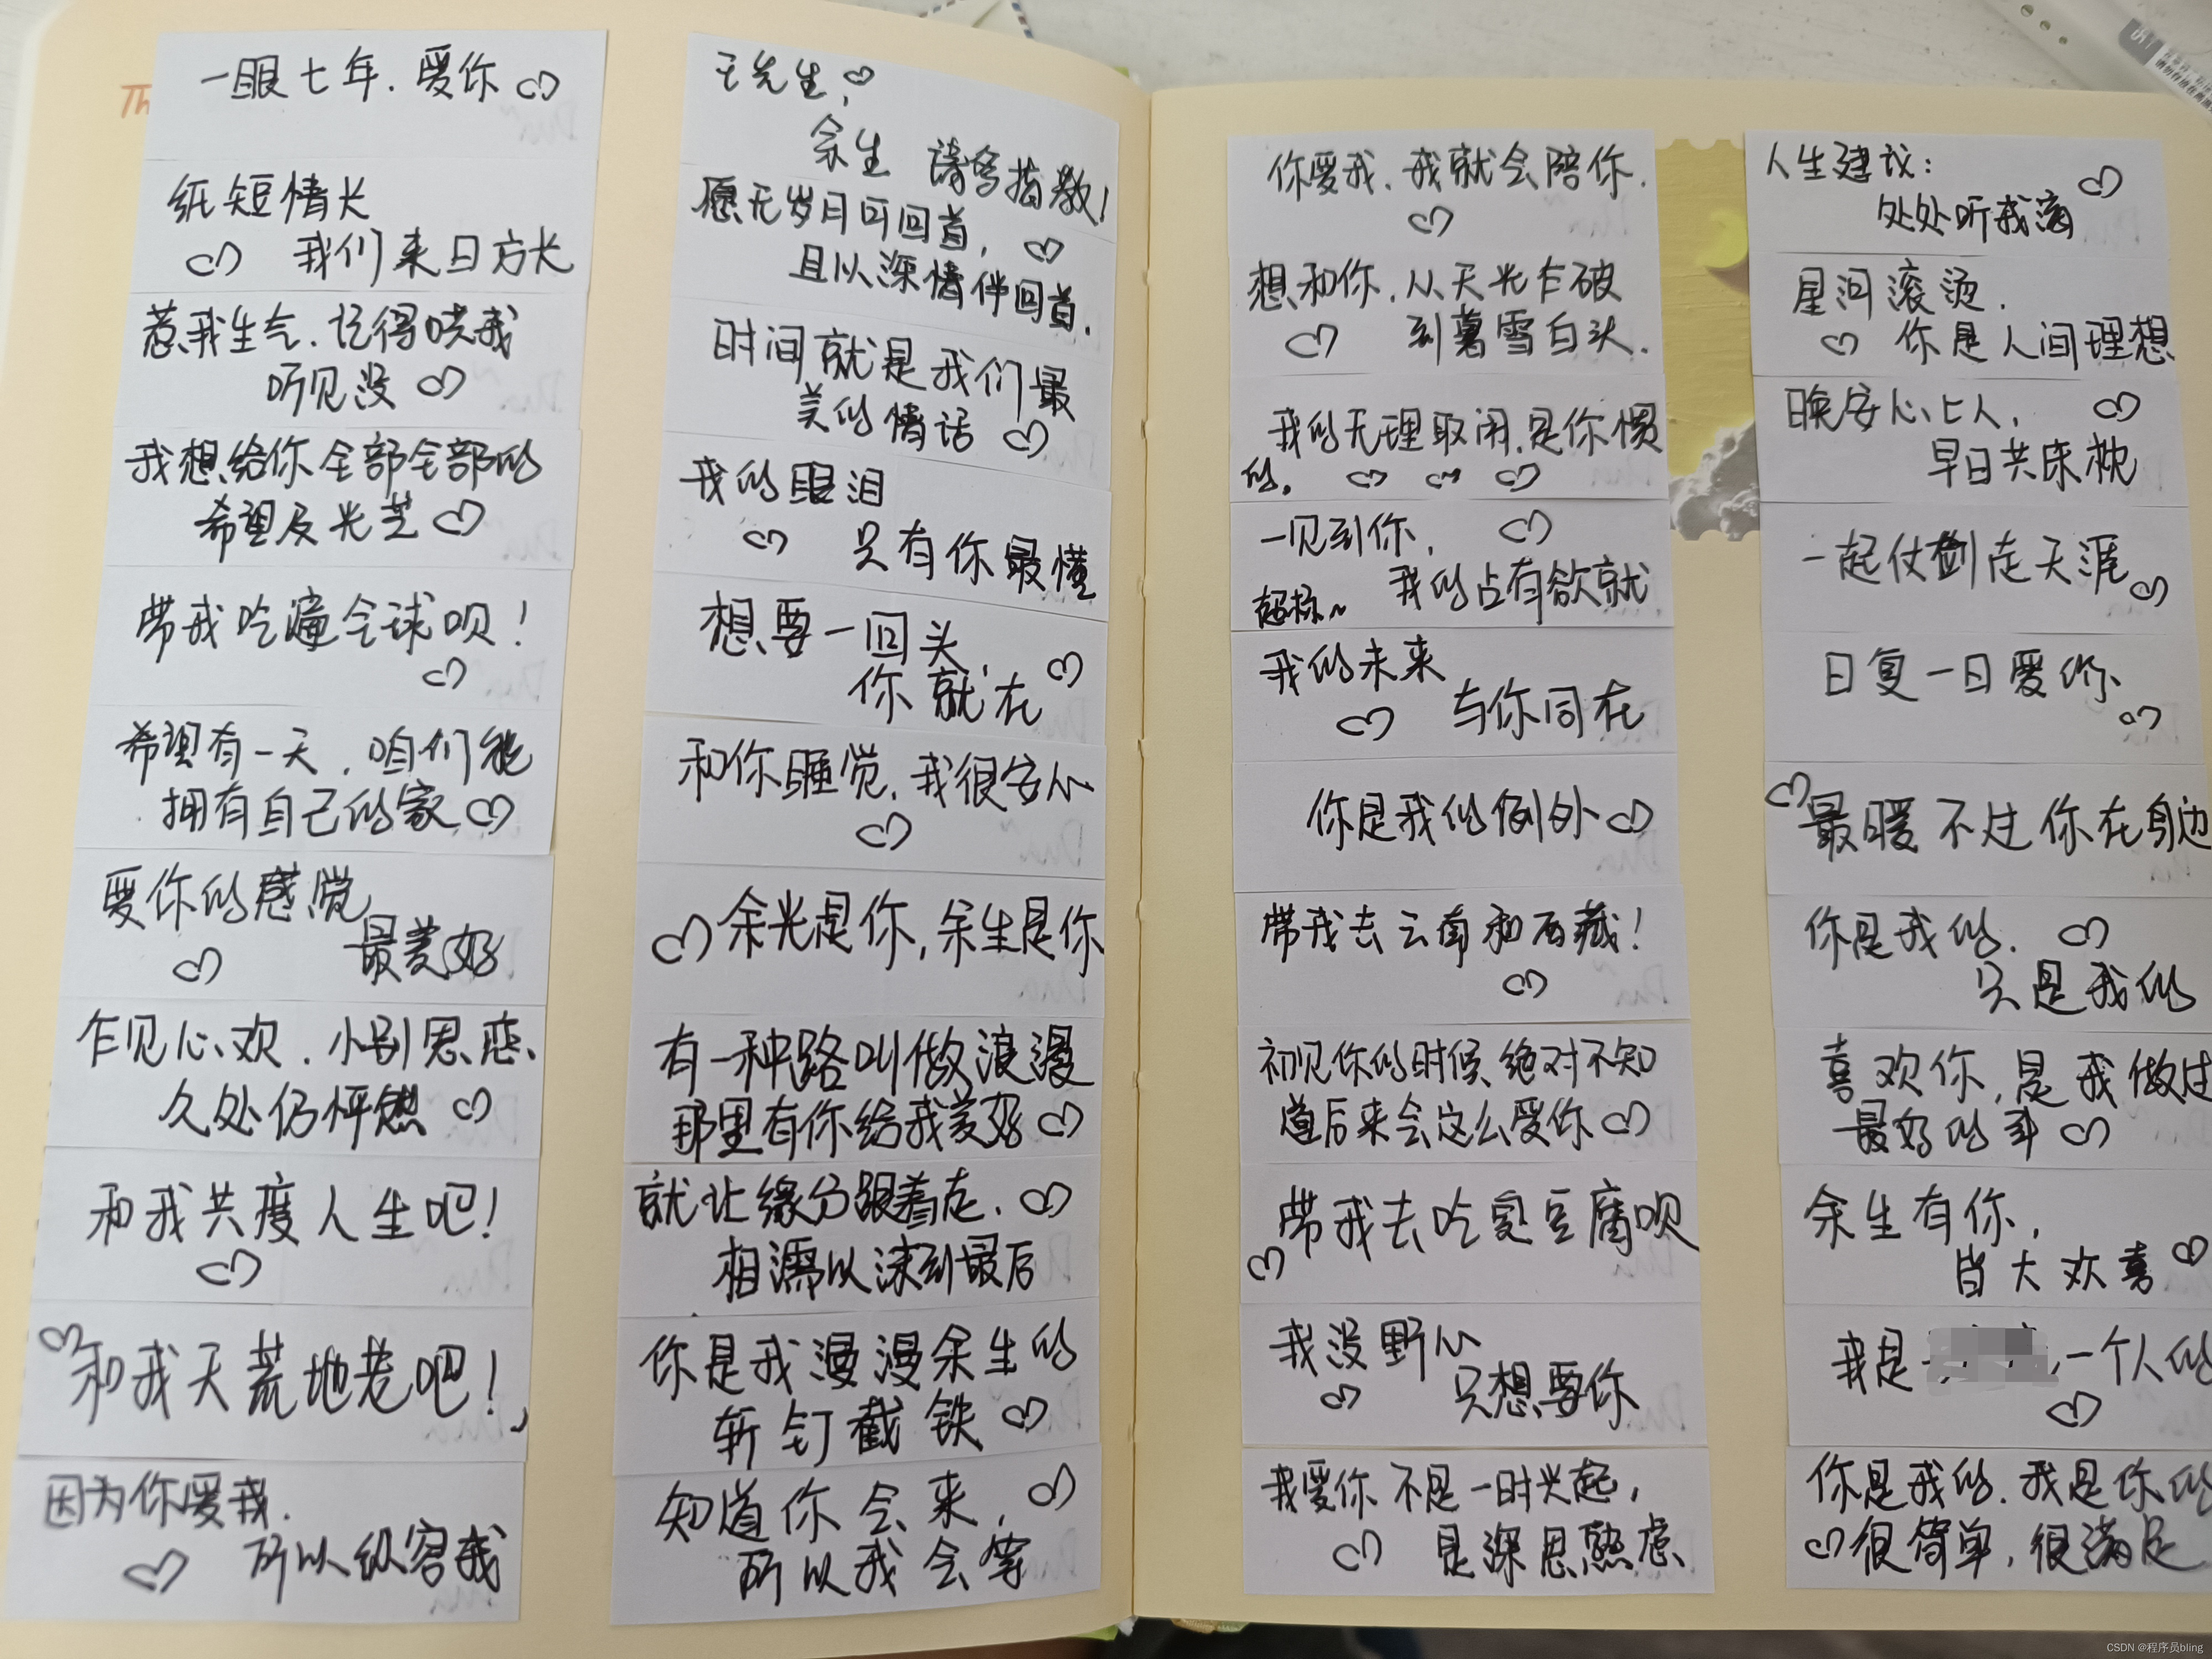 Th
一眼七年.爱你
纸短情长
我们来日方长
惹我生气.记得哄我
听见没
我想给你全部全部的
希望及光芒
带我吃遍全球呗!
希望有一天,咱们能
拥有自己的家
爱你的感觉
最美好
乍见心欢.小别思恋、
久处仍怦然
和我共度人生吧!
和我天荒地老吧!
因为你爱我.
所以纵容我
王先生,
余生 请多指教!
愿无岁月可回首,
且以深情伴回首.
时间就是我们最
美的情话
我的眼泪
只有你最懂
想要一回头,
你就在
和你睡觉,我很安心
余光是你,余生是你
有一种路叫做浪漫
那里有你给我美好
就让缘分跟着走.
相濡以沫到最后
你是我漫漫余生的
斩钉截铁
知道你会来,
所以我会等
你爱我.我就会陪你.
想和你,从天光乍破
到暮雪白头.
我的无理取闹.是你惯
的.
一见到你,
我的占有欲就
超标~
我的未来
与你同在
你是我的例外
带我去云南和西藏!
初见你的时候,绝对不知
道后来会这么爱你
带我去吃臭豆腐呗
我没野心
只想要你
我爱你不是一时兴起,
是深思熟虑
人生建议:
处处听我滴
星河滚烫.
你是人间理想
晚安心上人,
早日共床枕
一起仗剑走天涯
日复一日爱你
最暖不过你在身边
你是我的.
只是我的
喜欢你,是我做过
最好的事
余生有你,
皆大欢喜
我是 一个人的
你是我的.我是你的
很简单,很满足
CSDN @程序员bling